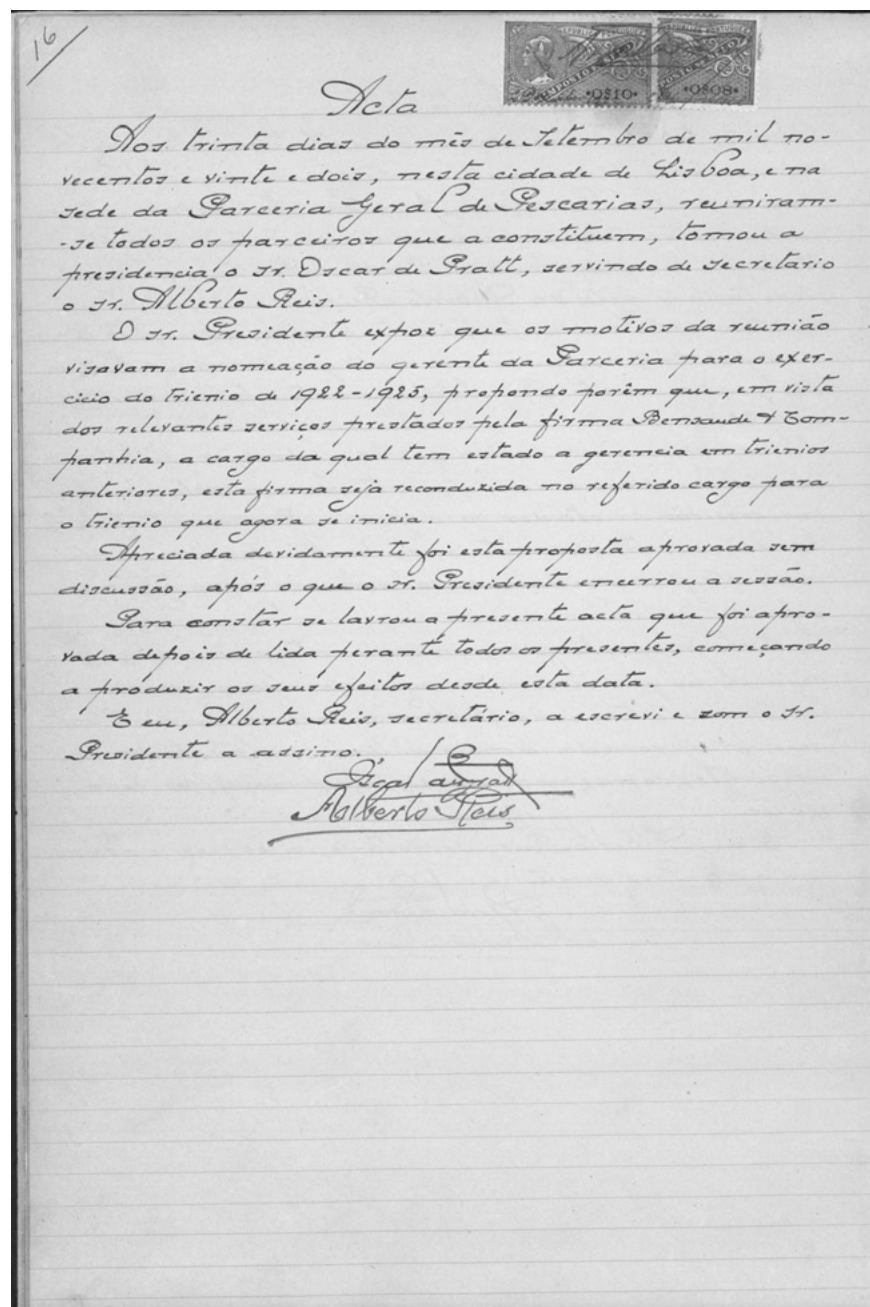 16
REPUBLICA PORTUGUESA
IMPOSTO DO SELO
•0$10•
•0$08•
Acta
Aos trinta dias do mês de Setembro de mil no-
vecentos e vinte e dois, nesta cidade de Lisboa, e na
sede da Parceria Geral de Pescarias, reuniram-
-se todos os parceiros que a constituem, tomou a
presidencia o sr. Oscar de Pratt, servindo de secretario
o sr. Alberto Reis.
O sr. Presidente expoz que os motivos da reunião
visavam a nomeação do gerente da Parceria para o exer-
cicio do trienio de 1922-1925, propondo porêm que, em vista
dos relevantes serviços prestados pela firma Bensaude & Com-
panhia, a cargo da qual tem estado a gerencia em trienios
anteriores, esta firma seja reconduzida no referido cargo para
o trienio que agora se inicia.
Apreciada devidamente foi esta proposta aprovada sem
discussão, após o que o sr. Presidente encerrou a sessão.
Para constar se lavrou a presente acta que foi apro-
vada depois de lida perante todos os presentes, começando
a produzir os seus efeitos desde esta data.
E eu, Alberto Reis, secretário, a escrevi e com o Sr.
Presidente a assino.
Alberto Reis